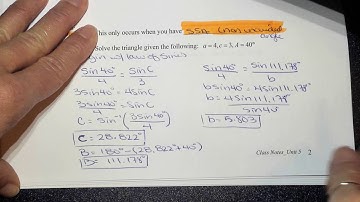 his only occurs when you have SSA (non included
angle
Solve the triangle given the following: a = 4, c = 3, A = 40°
gin w/ law of sines
sin40°/4 = sinC/3
3sin40° = 4sinC
3sin40°/4 = sinC
C = sin⁻¹(3sin40°/4)
C = 28.822°
B = 180° - (28.822° + 40°)
B = 111.178°
sin40°/4 = sin111.178°/b
bsin40° = 4sin111.178°
b = 4sin111.178°/sin40°
b = 5.803
Class Notes_Unit 5 2